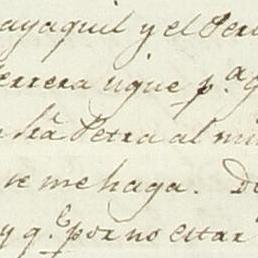 ayaquil y el Perú
errera sigue p.ª G
ñra Petra al mi
se me haga. D
y q.e por no estar